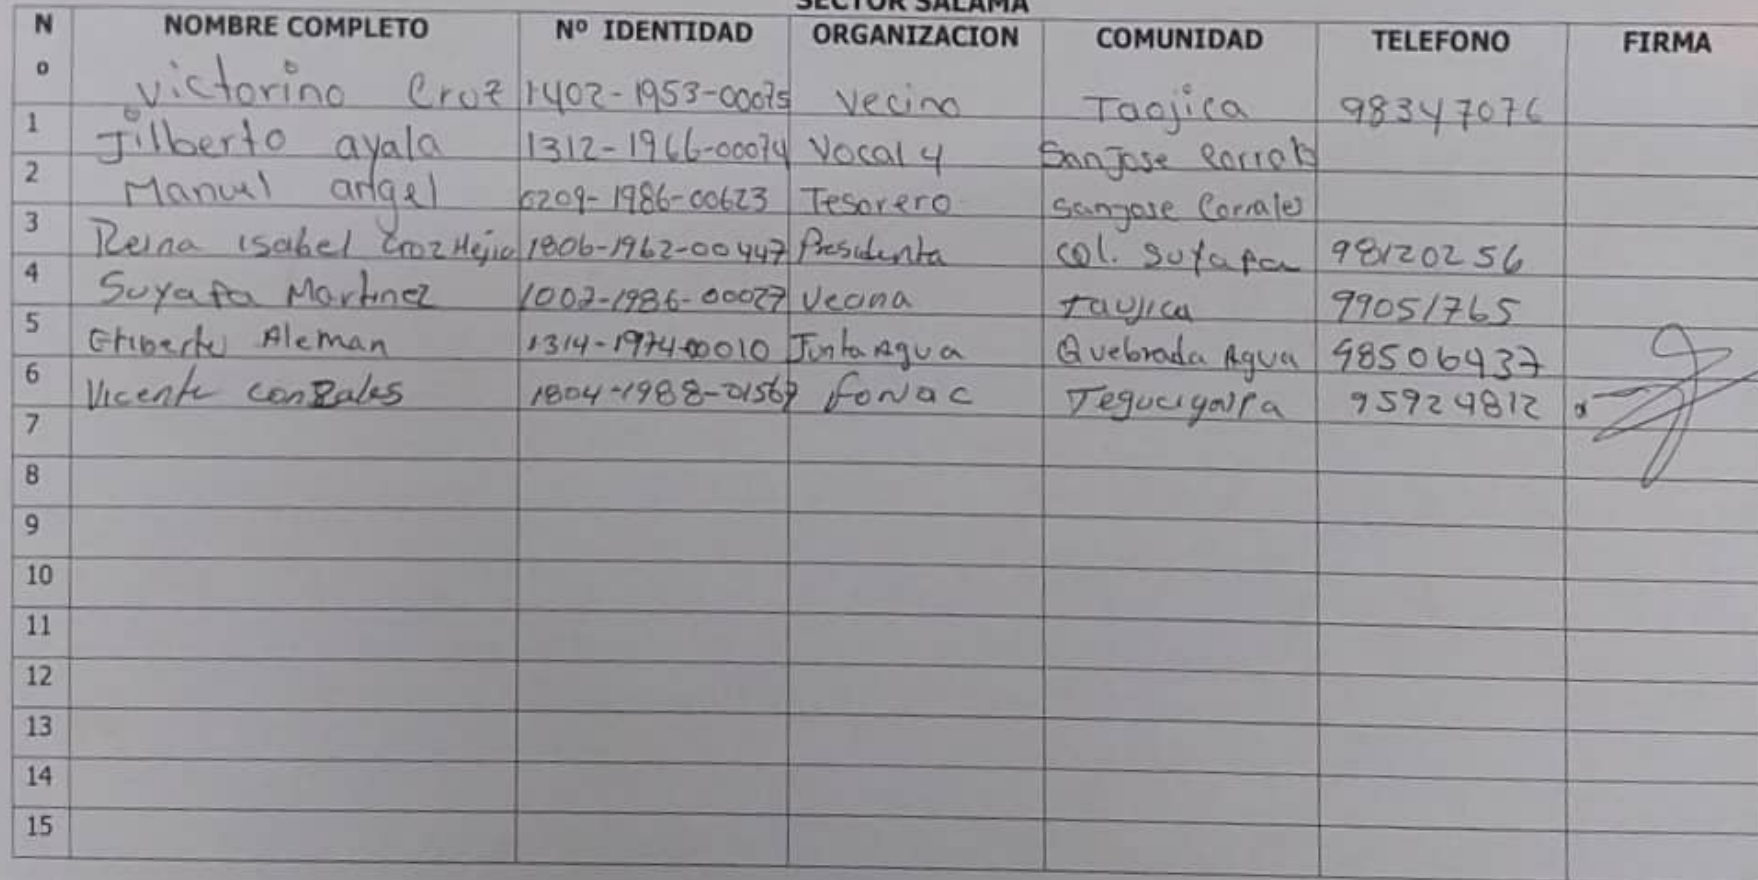 SECTOR SALAMA
No NOMBRE COMPLETO Nº IDENTIDAD ORGANIZACION COMUNIDAD TELEFONO FIRMA
Victorino Cruz 1402-1953-00075 Vecino Taojica 98347076
1 Jilberto ayala 1312-1966-00074 Vocal 4 San Jose Corrales
2 Manuel angel 0209-1986-00623 Tesorero San jose Corrales
3 Reina isabel Cruz Mejia 1806-1962-00447 Presidenta Col. Suyapa 98120256
4 Suyapa Martinez 1002-1986-00027 Vecina taujica 99051765
5 Eriberto Aleman 1314-1974-00010 Junta Agua Quebrada Agua 98506437
6 Vicente Conzales 1804-1988-01569 fonac Tegucigalpa 95924812
7
8
9
10
11
12
13
14
15